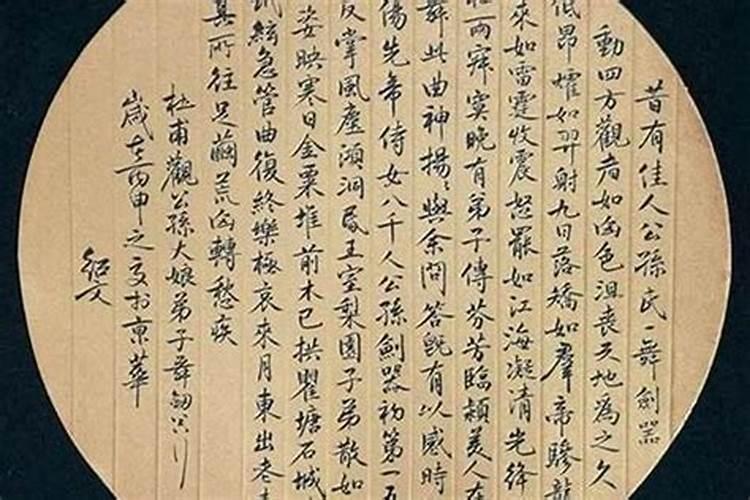 昔有佳人公孫氏一舞劍器
動四方觀者如山色沮喪天地為之久
低昂燿如羿射九日落矯如羣帝驂龍
來如雷霆收震怒罷如江海凝清光絳
兩寂寞晚有弟子傳芬芳臨潁美人在
舞此曲神揚揚與余問答既有以感時
傷先帝侍女八千人公孫劍器初第一五
反掌風塵澒洞昏王室梨園子弟散如
姿映寒日金粟堆前木已拱瞿塘石城
絃急管曲復終樂極哀來月東出老
其所往足繭荒山轉愁疾
杜甫觀公孫大娘弟子舞劍器行
歲在丙申之夏於京華
紹文